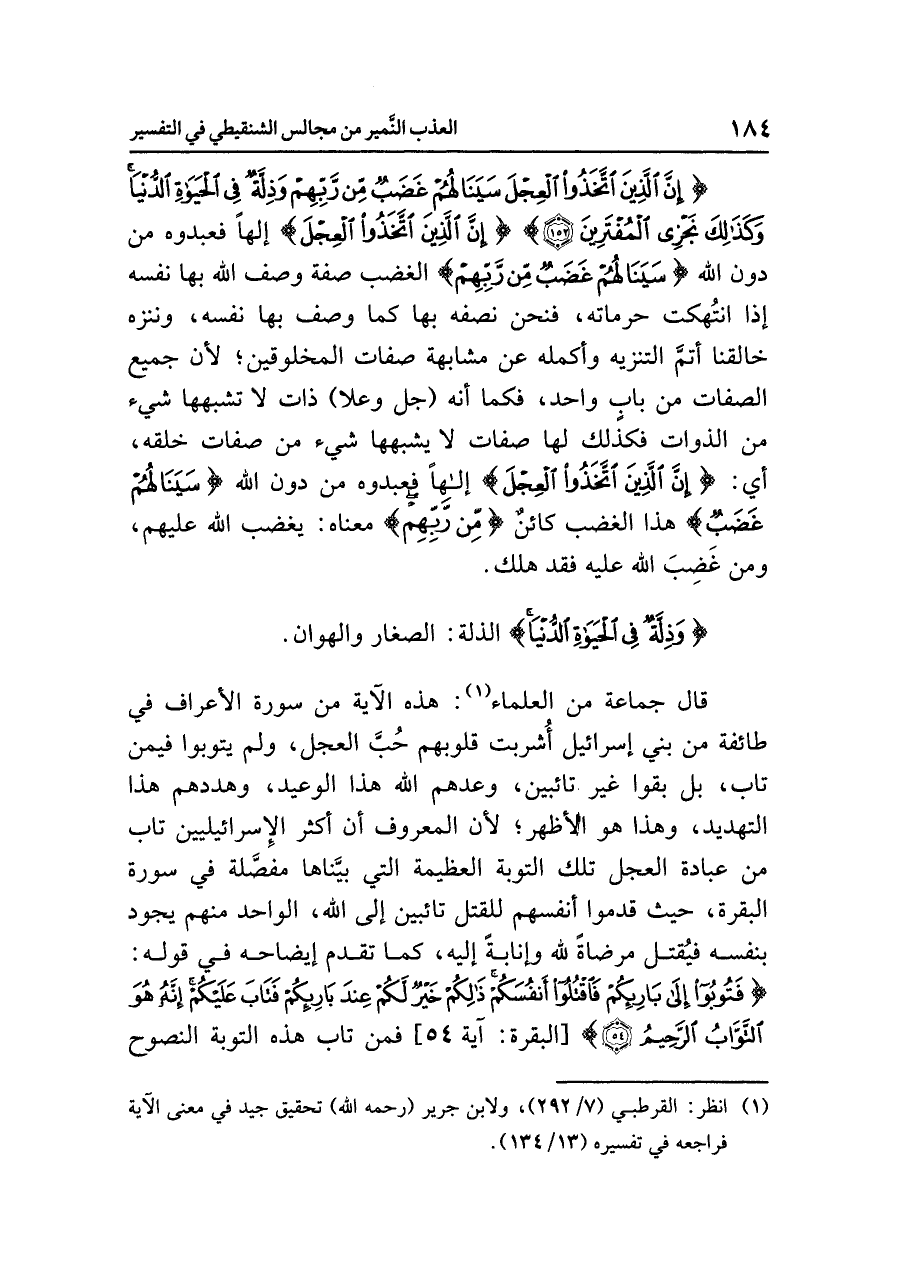 ١٨٤ العذب النَّمير من مجالس الشنقيطي في التفسير
﴿ إِنَّ ٱلَّذِينَ ٱتَّخَذُوا۟ ٱلْعِجْلَ سَيَنَالُهُمْ غَضَبٌ مِّن رَّبِّهِمْ وَذِلَّةٌ فِى ٱلْحَيَوٰةِ ٱلدُّنْيَا ۚ
وَكَذَٰلِكَ نَجْزِى ٱلْمُفْتَرِينَ ١٥٢﴾ ﴿ إِنَّ ٱلَّذِينَ ٱتَّخَذُوا۟ ٱلْعِجْلَ﴾ إلهاً فعبدوه من
دون الله ﴿ سَيَنَالُهُمْ غَضَبٌ مِّن رَّبِّهِمْ﴾ الغضب صفة وصف الله بها نفسه
إذا انتُهكت حرماته، فنحن نصفه بها كما وصف بها نفسه، وننزه
خالقنا أتمَّ التنزيه وأكمله عن مشابهة صفات المخلوقين؛ لأن جميع
الصفات من بابٍ واحد، فكما أنه (جل وعلا) ذات لا تشبهها شيء
من الذوات فكذلك لها صفات لا يشبهها شيء من صفات خلقه،
أي: ﴿ إِنَّ ٱلَّذِينَ ٱتَّخَذُوا۟ ٱلْعِجْلَ﴾ إلـٰهاً فعبدوه من دون الله ﴿ سَيَنَالُهُمْ
غَضَبٌ﴾ هذا الغضب كائنٌ ﴿ مِّن رَّبِّهِمْ﴾ معناه: يغضب الله عليهم،
ومن غَضِبَ الله عليه فقد هلك.
﴿ وَذِلَّةٌ فِى ٱلْحَيَوٰةِ ٱلدُّنْيَا ۚ﴾ الذلة: الصغار والهوان.
قال جماعة من العلماء(١): هذه الآية من سورة الأعراف في
طائفة من بني إسرائيل أُشربت قلوبهم حُبَّ العجل، ولم يتوبوا فيمن
تاب، بل بقوا غير تائبين، وعدهم الله هذا الوعيد، وهددهم هذا
التهديد، وهذا هو الأظهر؛ لأن المعروف أن أكثر الإِسرائيليين تاب
من عبادة العجل تلك التوبة العظيمة التي بيَّناها مفصَّلة في سورة
البقرة، حيث قدموا أنفسهم للقتل تائبين إلى الله، الواحد منهم يجود
بنفسه فيُقتل مرضاةً لله وإنابةً إليه، كما تقدم إيضاحه في قوله:
﴿ فَتُوبُوٓا۟ إِلَىٰ بَارِئِكُمْ فَٱقْتُلُوٓا۟ أَنفُسَكُمْ ذَٰلِكُمْ خَيْرٌ لَّكُمْ عِندَ بَارِئِكُمْ فَتَابَ عَلَيْكُمْ ۚ إِنَّهُۥ هُوَ
ٱلتَّوَّابُ ٱلرَّحِيمُ ٥٤﴾ [البقرة: آية ٥٤] فمن تاب هذه التوبة النصوح
(١) انظر: القرطبي (٧/ ٢٩٢)، ولابن جرير (رحمه الله) تحقيق جيد في معنى الآية
فراجعه في تفسيره (١٣/ ١٣٤).